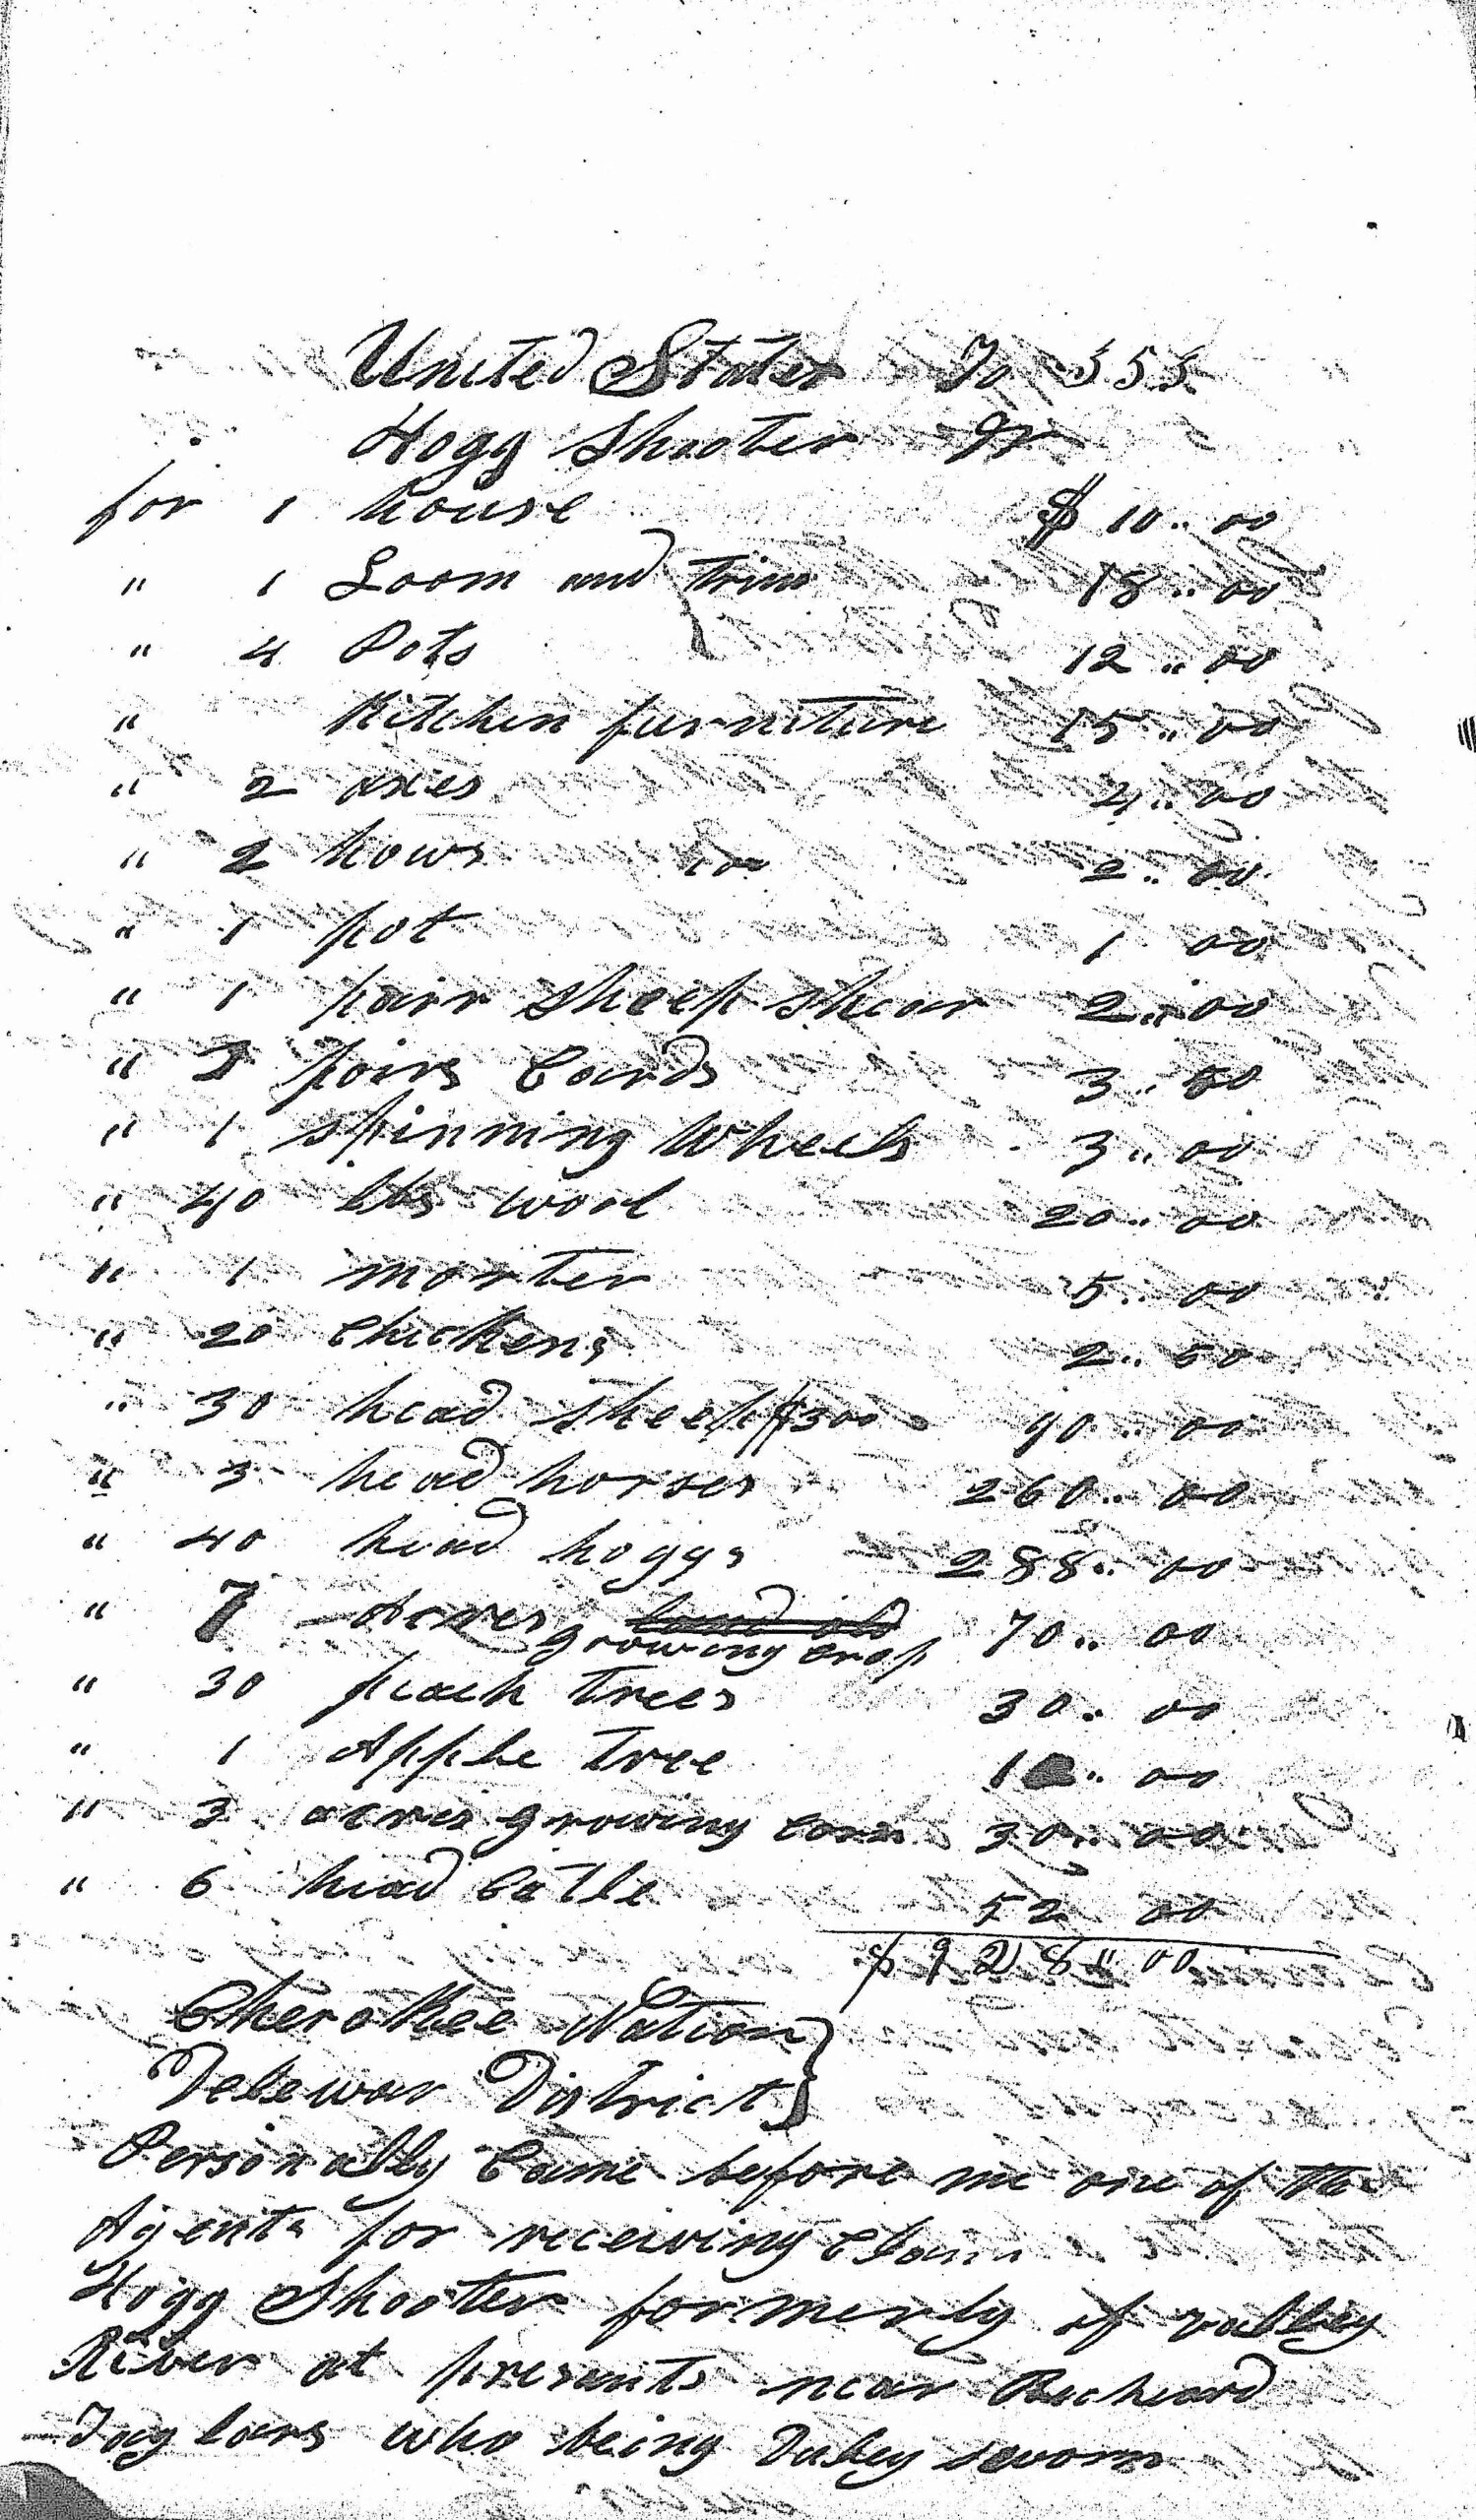 United States To 353
Hogg Shooter Jr
for 1 house $ 10.. 00
" 1 Loom and trim 18.. 00
" 4 Pots 12.. 00
" Kitchen furniture 15.. 00
" 2 axes 4.. 00
" 2 hows 2.. 00
" 1 pot 1 00
" 1 pair sheep shear 2.. 00
" pairs Cards 3.. 50
" 1 spinning Wheels 3.. 00
" 40 lbs wool 20.. 00
" 1 morter 5.. 00
" 20 Chickens 2.. 50
" 30 head sheep $300 90.. 00
" 3 head horses 260.. 00
" 40 head hoggs 288.. 00
" 7 Acres land old 70.. 00
growing crop
" 30 peach Trees 30.. 00
" 1 Apple Tree .. 00
" 3 acres growing corn 30.. 00
" 6 head Catle 52 00
$ 928 " 00
Cherokee Nation }
Delewar District }
Personally Came before me one of the
Agents for receiving Claim
Hogg Shooter formerly of valley
River at presents near Recheard
Taylors who being Duley sworn